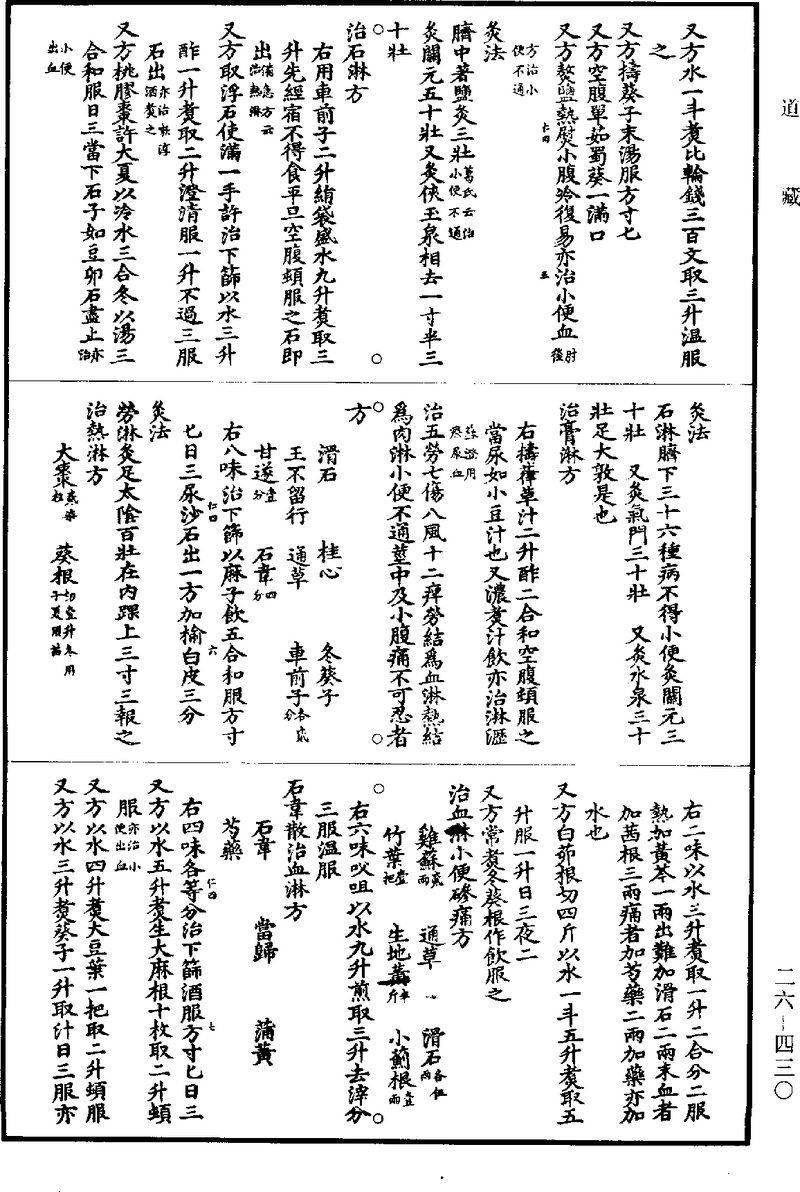 道藏
又方水一斗煮比輪錢三百文取三升温服
之
又方擣葵子末湯服方寸七
又方空腹單茹蜀葵一滿口
又方熬鹽熱熨小腹冷復易亦治小便血肘後
方治小便不通
灸法
臍中著鹽灸三壯葛氏云治小便不通
灸關元五十壯又灸俠玉泉相去一寸半三
十壯
治石淋方
右用車前子二升絹袋盛水九升煮取三
升先經宿不得食平旦空腹頓服之石即
出備急方云治熱淋
又方取浮石使滿一手許治下篩以水三升
酢一升煮取二升澄清服一升不過三服
石出亦治
酒煮之
又方桃膠棗許大夏以冷水三合冬以湯三
合和服日三當下石子如豆卵石盡止亦治
小便出血
灸法
石淋臍下三十六種病不得小便灸關元三
十壯　又灸氣門三十壯　又灸水泉三十
壯足大敦是也
治膏淋方
右擣葎草汁二升酢二合和空腹頓服之
當尿如小豆汁也又濃煮汁飲亦治淋瀝
尿血
治五勞七傷八風十二痹勞結為血淋熱結
為肉淋小便不通莖中及小腹痛不可忍者
方
滑石　桂心　冬葵子
王不留行　通草　車前子各貳分
甘遂壹分　石韋四分
右八味治下篩以麻子飲五合和服方寸
七日三尿沙石出一方加榆白皮三分
灸法
勞淋灸足太陰百壯在内踝上三寸三報之
治熱淋方
大棗貳柒枚　葵根切壹升冬用子夏用苗
右二味以水三升煮取一升二合分二服
熱加黄芩一兩出難加滑石二兩末血者
加茜根三兩痛者加芍藥二兩加藥亦加
水也
又方白茆根切四斤以水一斗五升煮取五
升服一升日三夜二
又方常煮冬葵根作飲服之
治血淋小便磣痛方
雞蘇貳兩　通草　滑石各伍兩
竹葉壹把　生地黄半斤　小薊根壹兩
右六味㕮咀以水九升煎取三升去滓分
三服温服
石韋散治血淋方
石韋　當歸　蒲黄
芍藥
右四味各等分治下篩酒服方寸匕日三
又方以水五升煮生大麻根十枚取二升頓
服亦治小便出血
又方以水四升煮大豆葉一把取二升頓服
又方以水三升煮葵子一升取汁日三服亦
二六－四三〇